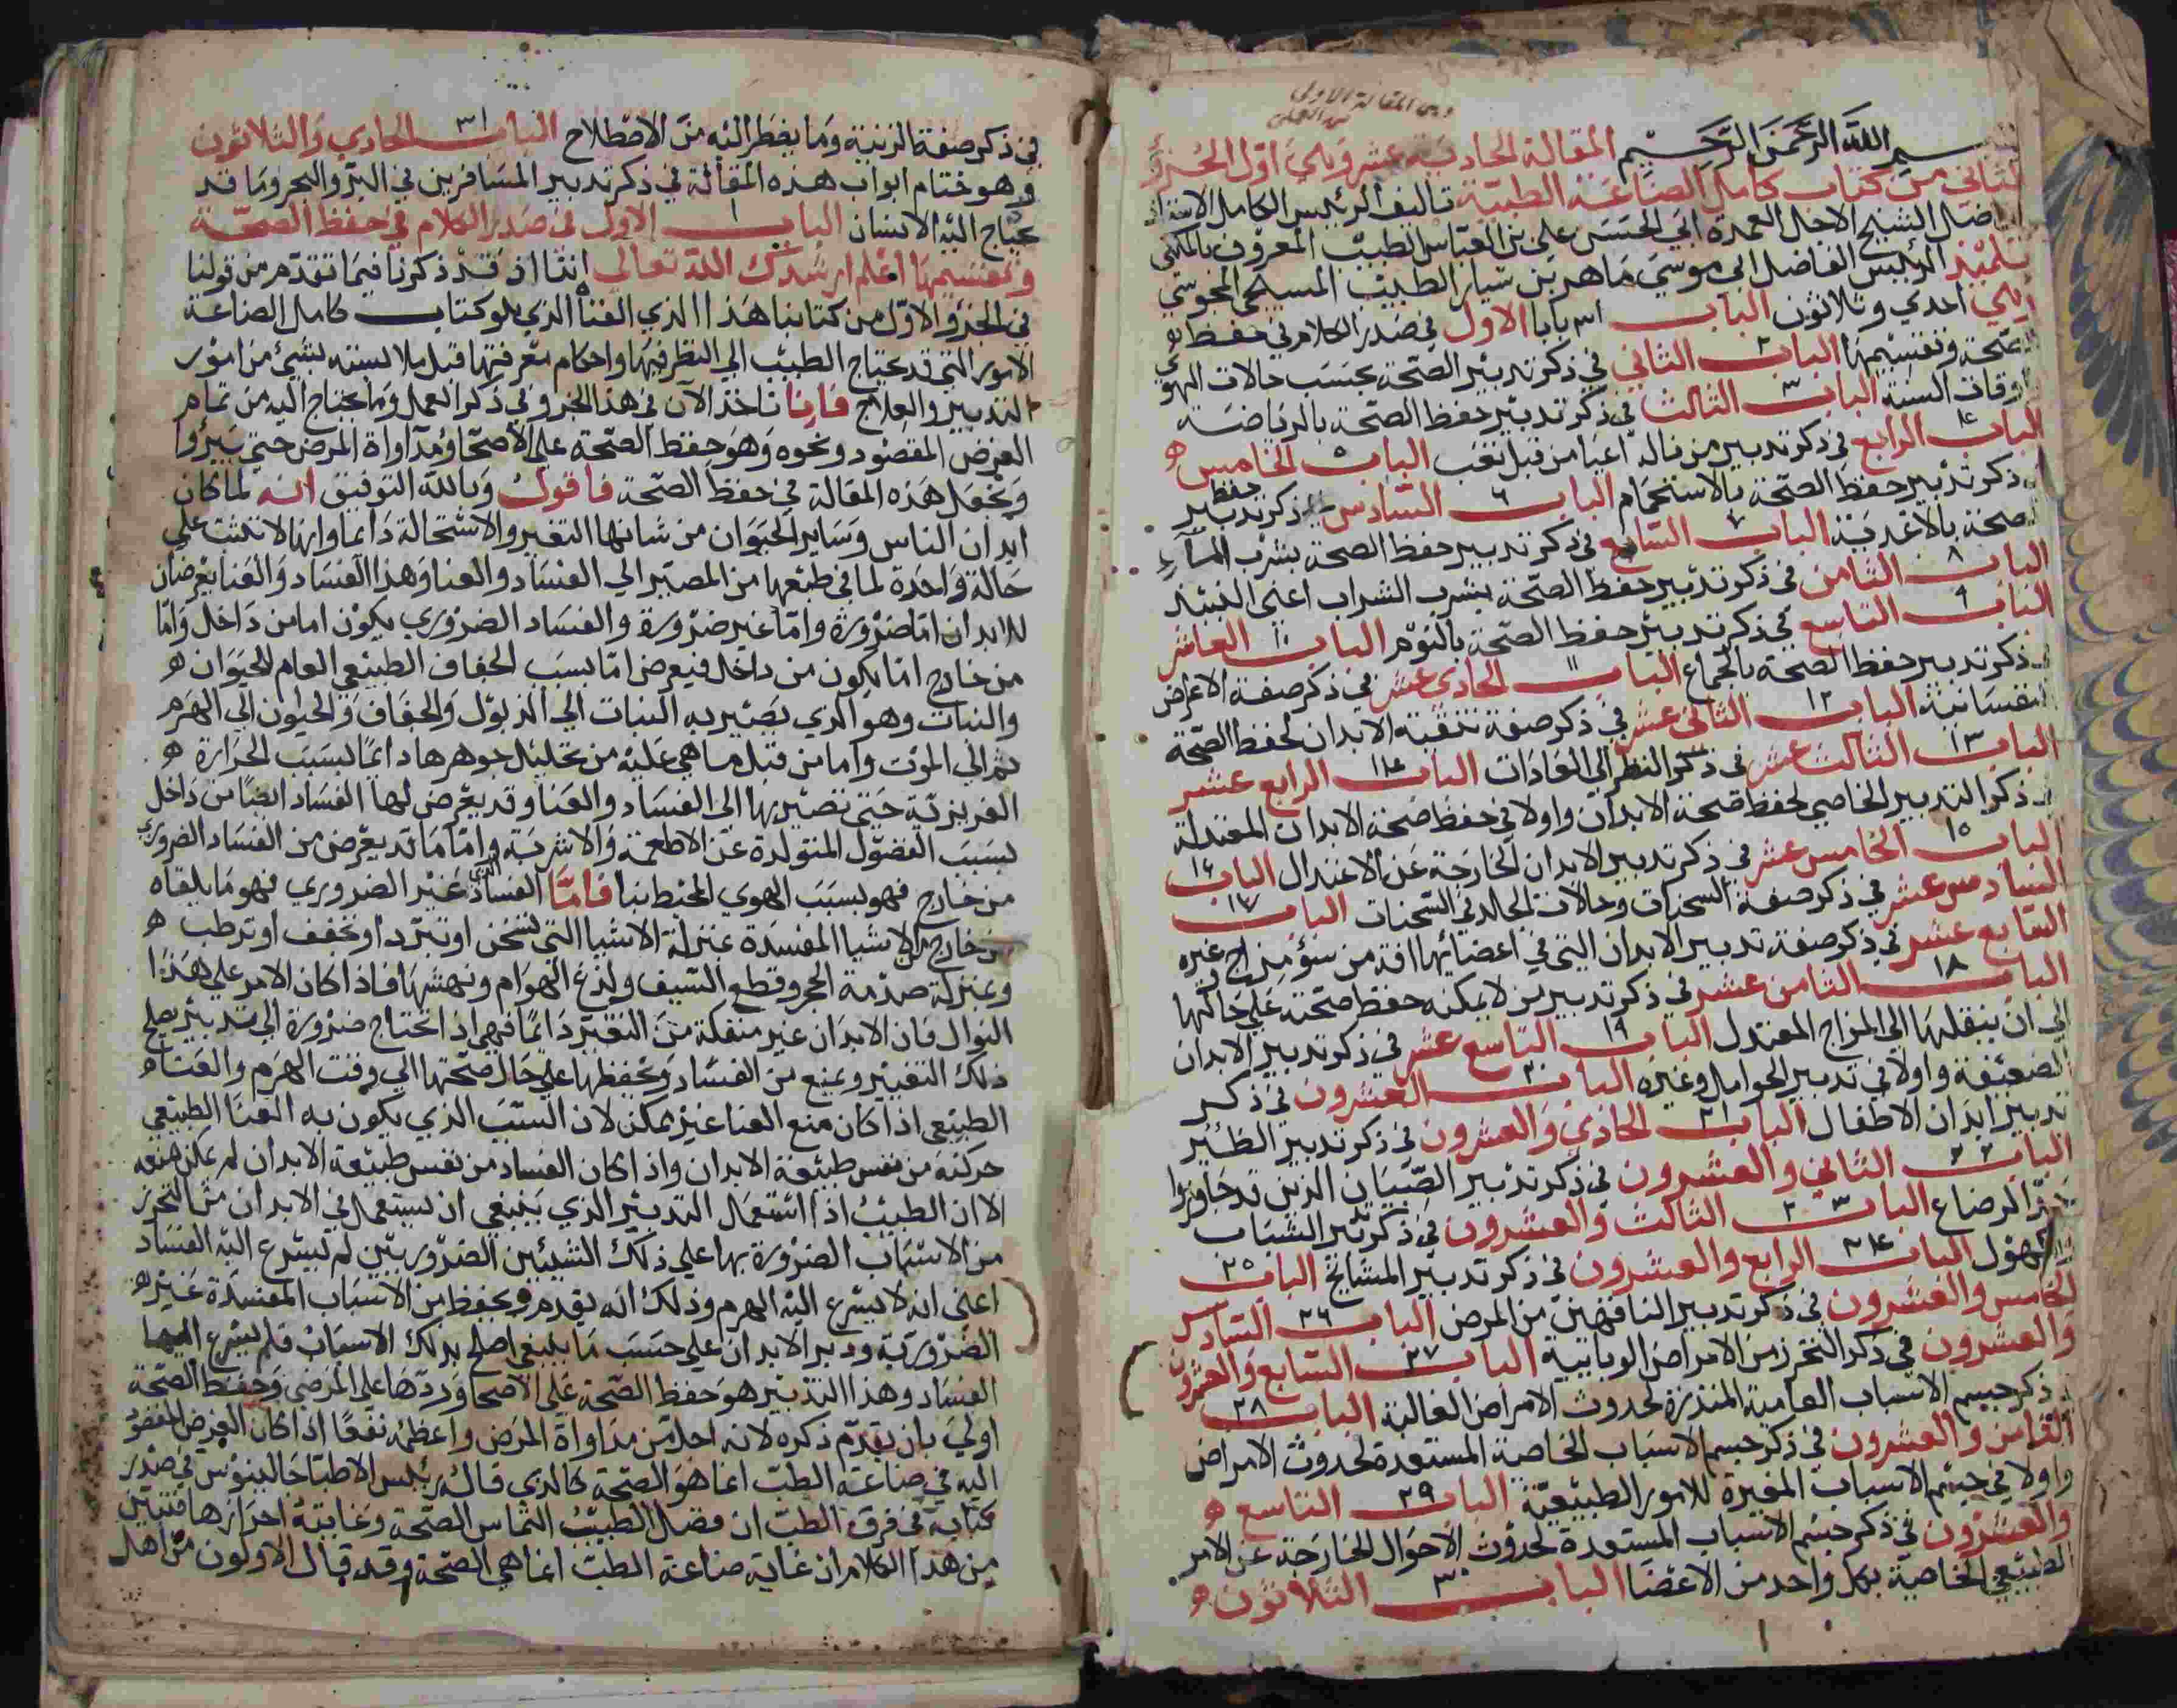 وهي المقالة الاولي
من العملي
بسم الله الرحمن الرحيم المقالة الحادية عشر وهي اول الجزؤ
الثاني من كتاب كامل الصناعة الطبية تاليف الرئيس الكامل الاستاذ
الفاضل الشيخ الاجل العمدة ابي الحسن علي بن العباس الطبيب المعروف بالمكني
تلميذ الرئيس الفاضل ابي موسي ماهر بن سيار الطبيب المسيحي المجوسي
وهي احدي وثلاثون الباب ٣١ بابا الاول في صدر الكلام في حفظ ه
الصحة وتقسيمها الباب ٢ الثاني في ذكر تدبير الصحة بحسب حالات الهوي
واوقات السنة الباب ٣ الثالث في ذكر تدبير حفظ الصحة بالرياضة
الباب ٤ الرابع في ذكر تدبير من ناله اعيا من قبل تعب الباب ٥ الخامس ه
في ذكر تدبير حفظ الصحة بالاستحمام الباب ٦ السادس في ذكر تدبير حفظ
الصحة بالاغدية الباب ٧ السابع في ذكر تدبير حفظ الصحة بشرب المآء
الباب ٨ الثامن في ذكر تدبير حفظ الصحة بشرب الشراب اعني النبيد
الباب ٩ التاسع في ذكر تدبير حفظ الصحة بالنوم الباب ١٠ العاشر
في ذكر تدبير حفظ الصحة بالجماع الباب ١١ الحادي عشر في ذكر صفة الاعراض
النفسانية الباب ١٢ الثاني عشر في ذكر صفة تنقية الابدان لحفظ الصحة
الباب ١٣ الثالث عشر في ذكر النظر الي العادات الباب ١٤ الرابع عشر
في ذكر التدبير الخاصي لحفظ صحة الابدان واولا في حفظ صحة الابدان المعتدلة
الباب ١٥ الخامس عشر في ذكر تدبير الابدان الخارجة عن الاعتدال الباب ١٦
السادس عشر في ذكر صفة السحنات وحالات الجلد في السحنات الباب ١٧
السابع عشر في ذكر صفة تدبير الابدان التي في اعضائها افة من سؤ مزاج وغيره
الباب ١٨ الثامن عشر في ذكر تدبير من لا يمكنه حفظ صحته علي حالتها
الي ان ينقلها الي المزاج المعتدل الباب ١٩ التاسع عشر في ذكر تدبير الابدان
الضعيفة واولا في تدبير الحوامل وغيره الباب ٢٠ العشرون في ذكر
تدبير ابدان الاطفال الباب ٢١ الحادي والعشرون في ذكر تدبير الظئير
الباب ٢٢ الثاني والعشرون في ذكر تدبير الصبيان الذين قد جاوزوا
حد الرضاع الباب ٢٣ الثالث والعشرون في ذكر تدبير الشباب
والكهول الباب ٢٤ الرابع والعشرون في ذكر تدبير المشايخ الباب ٢٥
الخامس والعشرون في ذكر تدبير الناقهين من المرض الباب ٢٦ السادس
والعشرون في ذكر التحرز من الامراض الوبايية الباب ٢٧ السابع والعشرون
في ذكر حسم الاسباب العامية المنذرة لحدوث الامراض الغالبة الباب ٢٨
الثامن والعشرون في ذكر حسم الاسباب الخاصية المستعدة لحدوث الامراض
واولا في حسم الاسباب المغيرة للامور الطبيعية الباب ٢٩ التاسع ه
والعشرون في ذكر حسم الاسباب المستعدة لحدوث الاحوال الخارجة عن الامر
الطبيعي الخاصية بكل واحد من الاعضا الباب ٣٠ الثلاثون ه
في ذكر صفة الزينة وما يضطر اليه من الاصطلاح الباب ٣١ الحادي والثلاثون
وهو ختام ابواب هذه المقالة في ذكر تدبير المسافرين في البر والبحر وما قد
يحتاج اليه الانسان الباب ١ الاول في صدر الكلام في حفظ الصحة
وتقسيمها اعلم ارشدك الله تعالي اننا اذ قد ذكرنا فيما تقدم من قولنا
في الجزؤ الاول من كتابنا هذا الذي الفنا الذي يلو كتاب كامل الصناعة
الامور التي قد يحتاج الطبيب الي النظر فيها واحكام معرفتها قبل ملابسته لشيئ من امور
التدبير والعلاج فاننا ناخذ الآن في هذا الجزو في ذكر العمل وما يحتاج اليه من تمام
الغرض المقصود ونحوه وهو حفظ الصحة علي الاصحا ومداواة المرض حتي يبرؤا
ونجعل هذه المقالة في حفظ الصحة فاقول وبالله التوفيق انه لما كان
ابدان الناس وساير الحيوان من شانها التغير والاستحالة دايما وانها لا تلبث علي
حالة واحدة لما في طبعها من المصير الي الفساد والفنا وهذا الفساد والفنا يعرضان
للابدان اما ضرورة واما غير ضرورة والفساد الضروري يكون اما من داخل واما
من خارج اما يكون من داخل فيعرض اما بسبب الجفاف الطبيعي العام للحيوان ه
والنبات وهو الذي يصير به النبات الي الذبول والجفاف والحيوان الي الهرم
ثم الي الموت واما من قبل ما هي عليه من تحليل جوهرها دائما بسبب الحرارة ه
الغريزية حتي تصير بها الي الفساد والفنا وقد يعرض لها الفساد ايضا من داخل
بسبب الفضول المتولدة عن الاطعمة والاشربة واما ما قد يعرض من الفساد الضروري
من خارج فهو بسبب الهوي المحيط بنا فاما الفساد الذي غير الضروري فهو ما يلقاه
من خارج من الاشيا المفسدة بمنزلة الاشيا التي تسخن او تبرد او تجفف او ترطب ه
وبمنزلة صدمة الحجر وقطع السيف ولذغ الهوام ونهشها فاذا كان الامر علي هذا
النوال فان الابدان غير منفكة من التغير دائما فهي اذا تحتاج ضرورة الي تدبير يصلح
ذلك التغيير ويمنع من الفساد ويحفظها علي حال صحتها الي وقت الهرم والفناه
الطبيعي اذا كان منع الفنا غير ممكن لان السبب الذي يكون به الفنا الطبيعي
حركته من نفس طبيعة الابدان واذا كان الفساد من نفس طبيعة الابدان لم يمكن منعه
الا ان الطبيب اذا استعمل التدبير الذي ينبغي ان يستعمل في الابدان من التحرز
من الاسباب الضرورة بها علي ذلك الشيئين الضروريين لم يسرع اليه الفساد
اعني انه لا يسرع اليه الهرم وذلك انه يقدم ويحفظ من الاسباب المفسدة غير ه
الضرورية ودبر الابدان علي حسب ما ينبغي اصلح بذلك الاسباب فلم يسرع اليها
الفساد وهذا التدبير هو حفظ الصحة علي الاصحا وردها علي المرضي وحفظ الصحة
اولي بان يقدم ذكره لانه اجل من مداواة المرض واعظمه نفعا اذا كان الغرض المقصود
اليه في صناعة الطب انما هو الصحة كالذي قال رئيس الاطبا جالينوس في صدر
كتابه في فرق الطب ان فضل الطبيب التماس الصحة وغايته احرازها فتبين
من هذا الكلام ان غاية صناعة الطب انما هي الصحة وقد قال الاولون من اهل